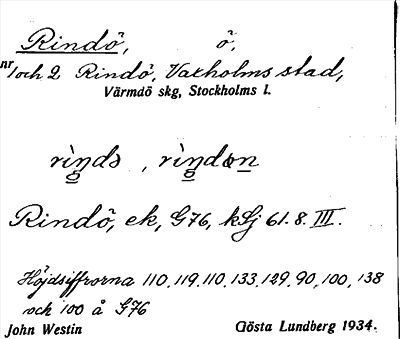 Rindö, ö,
nr 1 och 2 Rindö, Vaxholms stad,
Värmdö skg, Stockholms l.
Rindö, ek, G76, kSj 61.8.III.
Höjdsiffrorna 110, 119, 110, 133, 129, 90, 100, 138
och 100 å G76
John Westin Gösta Lundberg 1934.